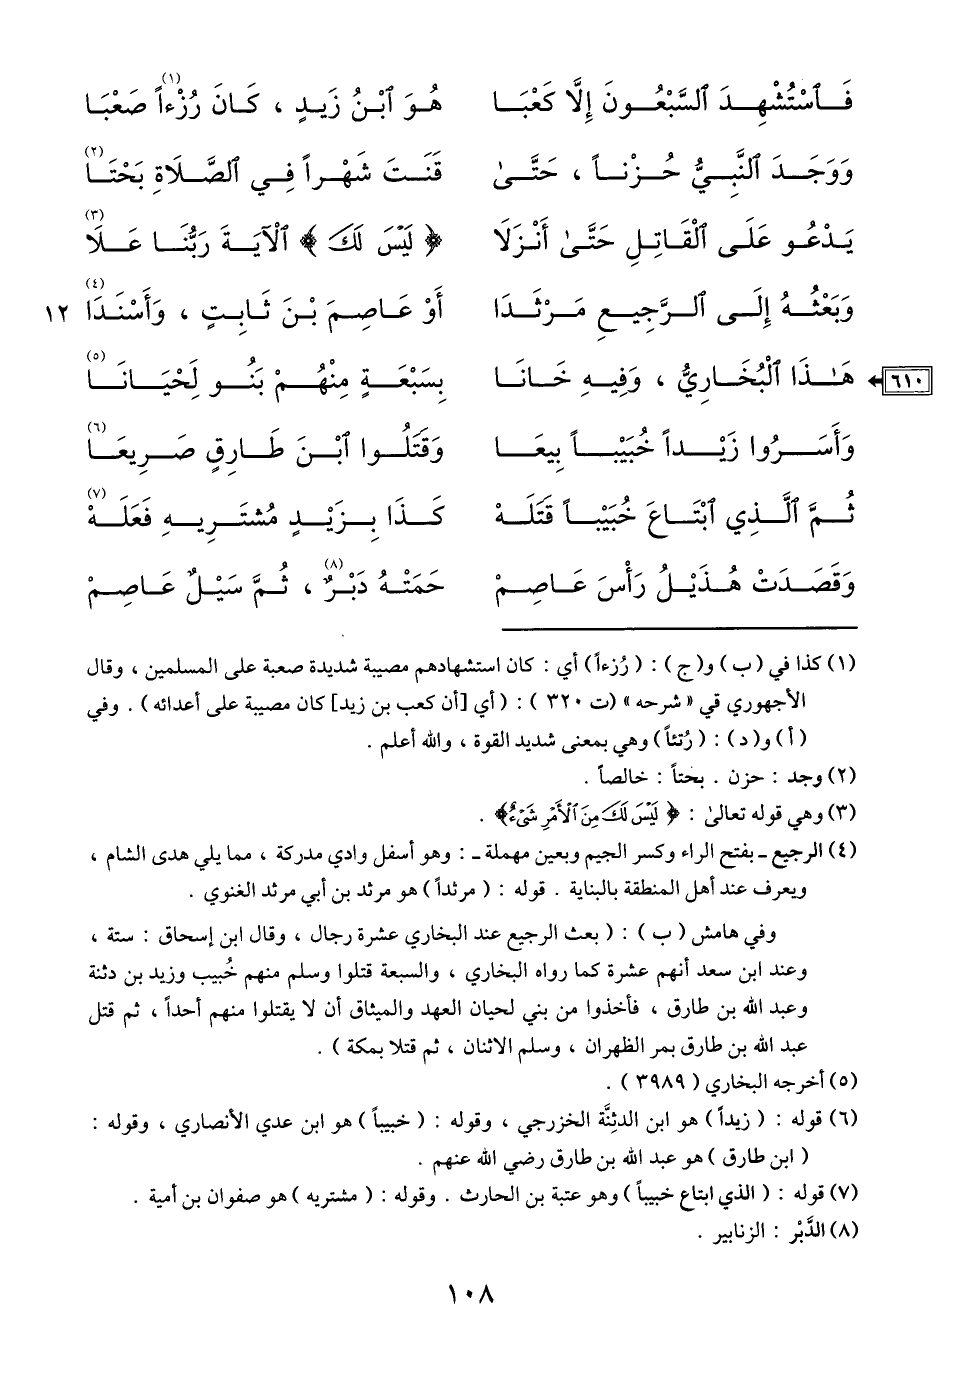 فَٱسْتُشْهِدَ ٱلسَّبْعُونَ إِلَّا كَعْبَا هُوَ ٱبْنُ زَيدٍ ، كَانَ رُزْءاً صَعْبَا (١)
وَوَجَدَ ٱلنَّبِيُّ حُزْناً ، حَتَّىٰ قَنَتَ شَهْراً فِي ٱلصَّلَاةِ بَحْتَا (٢)
يَدْعُو عَلَى ٱلْقَاتِلِ حَتَّىٰ أَنْزَلَا ﴿ لَيْسَ لَكَ ﴾ ٱلْآيَةَ رَبُّنَا عَلَا (٣)
وَبَعْثُهُ إِلَى ٱلرَّجِيعِ مَرْثَدَا أَوْ عَاصِمَ بْنَ ثَابِتٍ ، وَأَسْنَدَا (٤) ١٢
٦١٠ هَٰذَا ٱلْبُخَارِيُّ ، وَفِيهِ خَانَا بِسَبْعَةٍ مِنْهُمْ بَنُو لَحْيَانَا (٥)
وَأَسَرُوا زَيْداً خُبَيْباً بِيعَا وَقَتَلُوا ٱبْنَ طَارِقٍ صَرِيعَا (٦)
ثُمَّ ٱلَّذِي ٱبْتَاعَ خُبَيْباً قَتَلَهْ كَذَا بِزَيْدٍ مُشْتَرِيهِ فَعَلَهْ (٧)
وَقَصَدَتْ هُذَيْلُ رَأْسَ عَاصِمْ حَمَتْهُ دَبْرٌ (٨) ، ثُمَّ سَيْلٌ عَاصِمْ
(١) كذا في (ب) و(ج) : (رُزءاً) أي : كان استشهادهم مصيبة شديدة صعبة على المسلمين ، وقال
الأجهوري في « شرحه » (ت ٣٢٠ ) : (أي [أن كعب بن زيد] كان مصيبة على أعدائه) . وفي
(أ) و(د) : (رُتئاً) وهي بمعنى شديد القوة ، والله أعلم .
(٢) وجد : حزن . بحتاً : خالصاً .
(٣) وهي قوله تعالىٰ : ﴿ لَيْسَ لَكَ مِنَ ٱلْأَمْرِ شَىْءٌ﴾ .
(٤) الرجيع ـ بفتح الراء وكسر الجيم وبعين مهملة ـ : وهو أسفل وادي مدركة ، مما يلي هدى الشام ،
ويعرف عند أهل المنطقة بالبناية . قوله : ( مرثداً ) هو مرثد بن أبي مرثد الغنوي .
وفي هامش ( ب ) : ( بعث الرجيع عند البخاري عشرة رجال ، وقال ابن إسحاق : ستة ،
وعند ابن سعد أنهم عشرة كما رواه البخاري ، والسبعة قتلوا وسلم منهم خُبيب وزيد بن دثنة
وعبد الله بن طارق ، فأخذوا من بني لحيان العهد والميثاق أن لا يقتلوا منهم أحداً ، ثم قتل
عبد الله بن طارق بمر الظهران ، وسلم الاثنان ، ثم قتلا بمكة ) .
(٥) أخرجه البخاري ( ٣٩٨٩ ) .
(٦) قوله : ( زيداً ) هو ابن الدثِنَّة الخزرجي ، وقوله : ( خبيباً ) هو ابن عدي الأنصاري ، وقوله :
( ابن طارق ) هو عبد الله بن طارق رضي الله عنهم .
(٧) قوله : ( الذي ابتاع خبيباً ) وهو عتبة بن الحارث . وقوله : ( مشتريه ) هو صفوان بن أمية .
(٨) الدَّبْر : الزنابير .
١٠٨